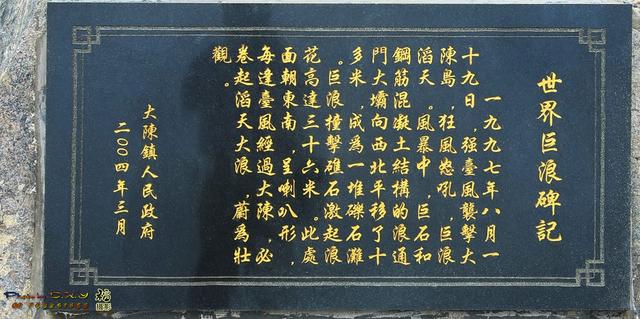 世界巨浪碑記
一九九七年八月一
十九日,强臺風襲擊大
陳島,狂風怒吼,巨浪
滔天。風暴中,巨石和
鋼筋混凝土結構的浪通
門大壩向西北平移了十
多米,成為一堆礫石灘
。巨浪撞擊礁石激起浪
花高達三十六米。此處
面朝東南,呈喇叭形,
每逢臺風經過大陳,必
卷起滔天大浪,蔚為壯
觀。
大陳鎮人民政府
二00四年三月